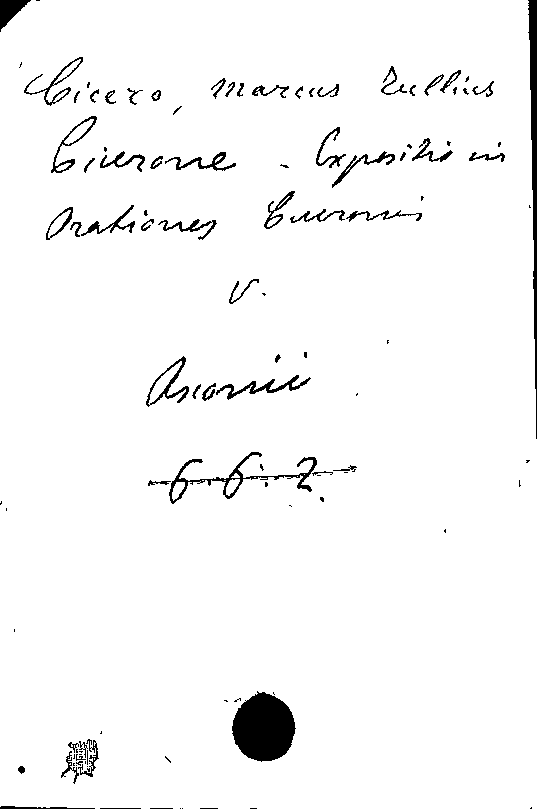 Cicero, Marcus Tullius
Cicerone - Expositio in
Orationes Ciceronis
V.
Asconii
6.6.2.